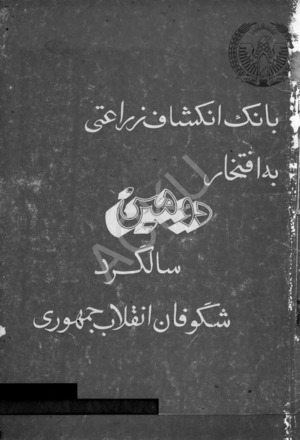 بانک انکشاف زراعتی
به افتخار
دومین
سالگرد
شگوفان انقلاب جمهوری
ACKU